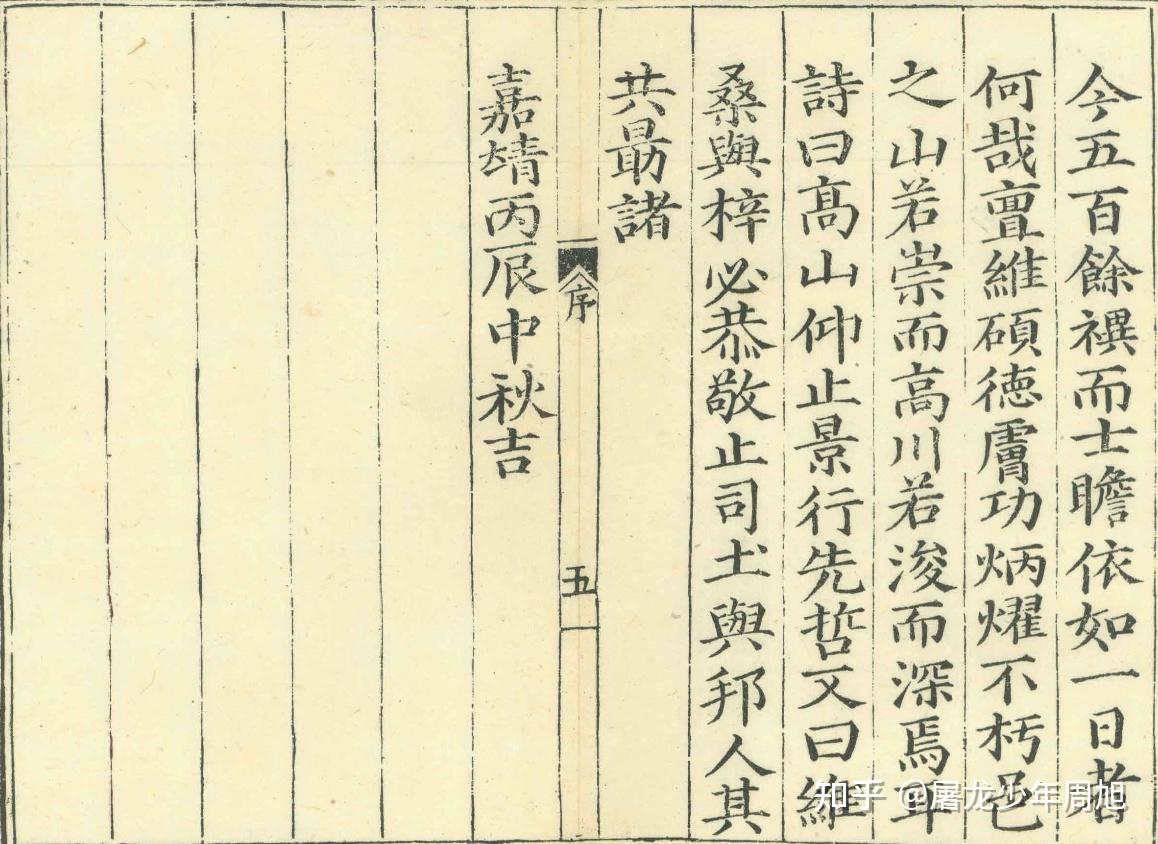 今五百餘禩而士瞻依如一日者
何哉亶維碩徳膚功炳燿不朽邑
之山若崇而高川若浚而深焉耳
詩曰髙山仰止景行先哲又曰維
桑與梓必恭敬止司土與邦人其
共勗諸
序
五
嘉靖丙辰中秋吉
知乎 @屠龙少年周旭